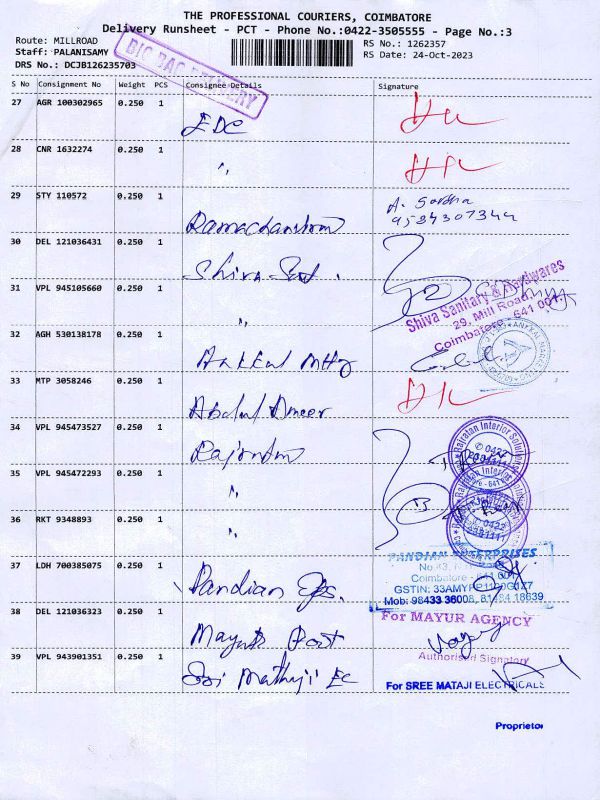 THE PROFESSIONAL COURIERS, COIMBATORE
Delivery Runsheet - PCT - Phone No.:0422-3505555 - Page No.:3
Route: MILLROAD
Staff: PALANISAMY
DRS No.: DCJB126235703
RS No.: 1262357
RS Date: 24-Oct-2023
S No Consignment No Weight PCS Consignee Details Signature
27 AGR 100302965 0.250 1 EDC
28 CNR 1632274 0.250 1 "
29 STY 110572 0.250 1 Ramachandran
30 DEL 121036431 0.250 1 Shiva
31 VPL 945105660 0.250 1 "
Shiva Sanitary & Hardwares
29, Mill Road,
Coimbatore - 641 001.
32 AGH 530138178 0.250 1
33 MTP 3058246 0.250 1 Abdul Ameer
34 VPL 945473527 0.250 1
Rajratan Interior Solutions
35 VPL 945472293 0.250 1 "
36 RKT 9348893 0.250 1 "
PANDIAN ENTERPRISES
Coimbatore - 641 001
37 LDH 700385075 0.250 1 Pandian
GSTIN: 33AMYP
Mob: 98433 36008,
38 DEL 121036323 0.250 1
For MAYUR AGENCY
Authorised Signatory
39 VPL 943901351 0.250 1 Sri Mathaji EC
For SREE MATAJI ELECTRICALS
Proprietor